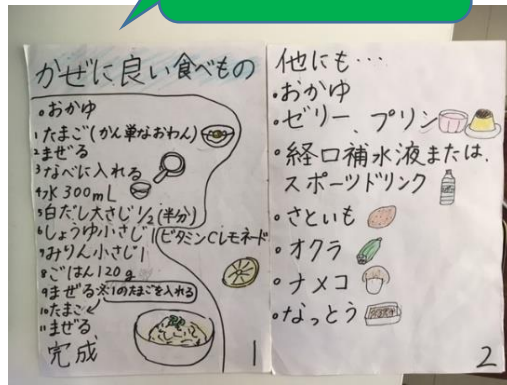 かぜに良い食べもの
・おかゆ
1たまご(かん単なおわん)
2まぜる
3なべに入れる
4水300mL
5白だし大さじ1/2(半分)
6しょうゆ小さじ1
7みりん小さじ1
8ごはん120g
9まぜる※1のたまごを入れる
10たまご
11まぜる
完成
ビタミンCレモネード
1
他にも…
・おかゆ
・ゼリー、プリン
・経口補水液または、
スポーツドリンク
・さといも
・オクラ
・ナメコ
・なっとう
2